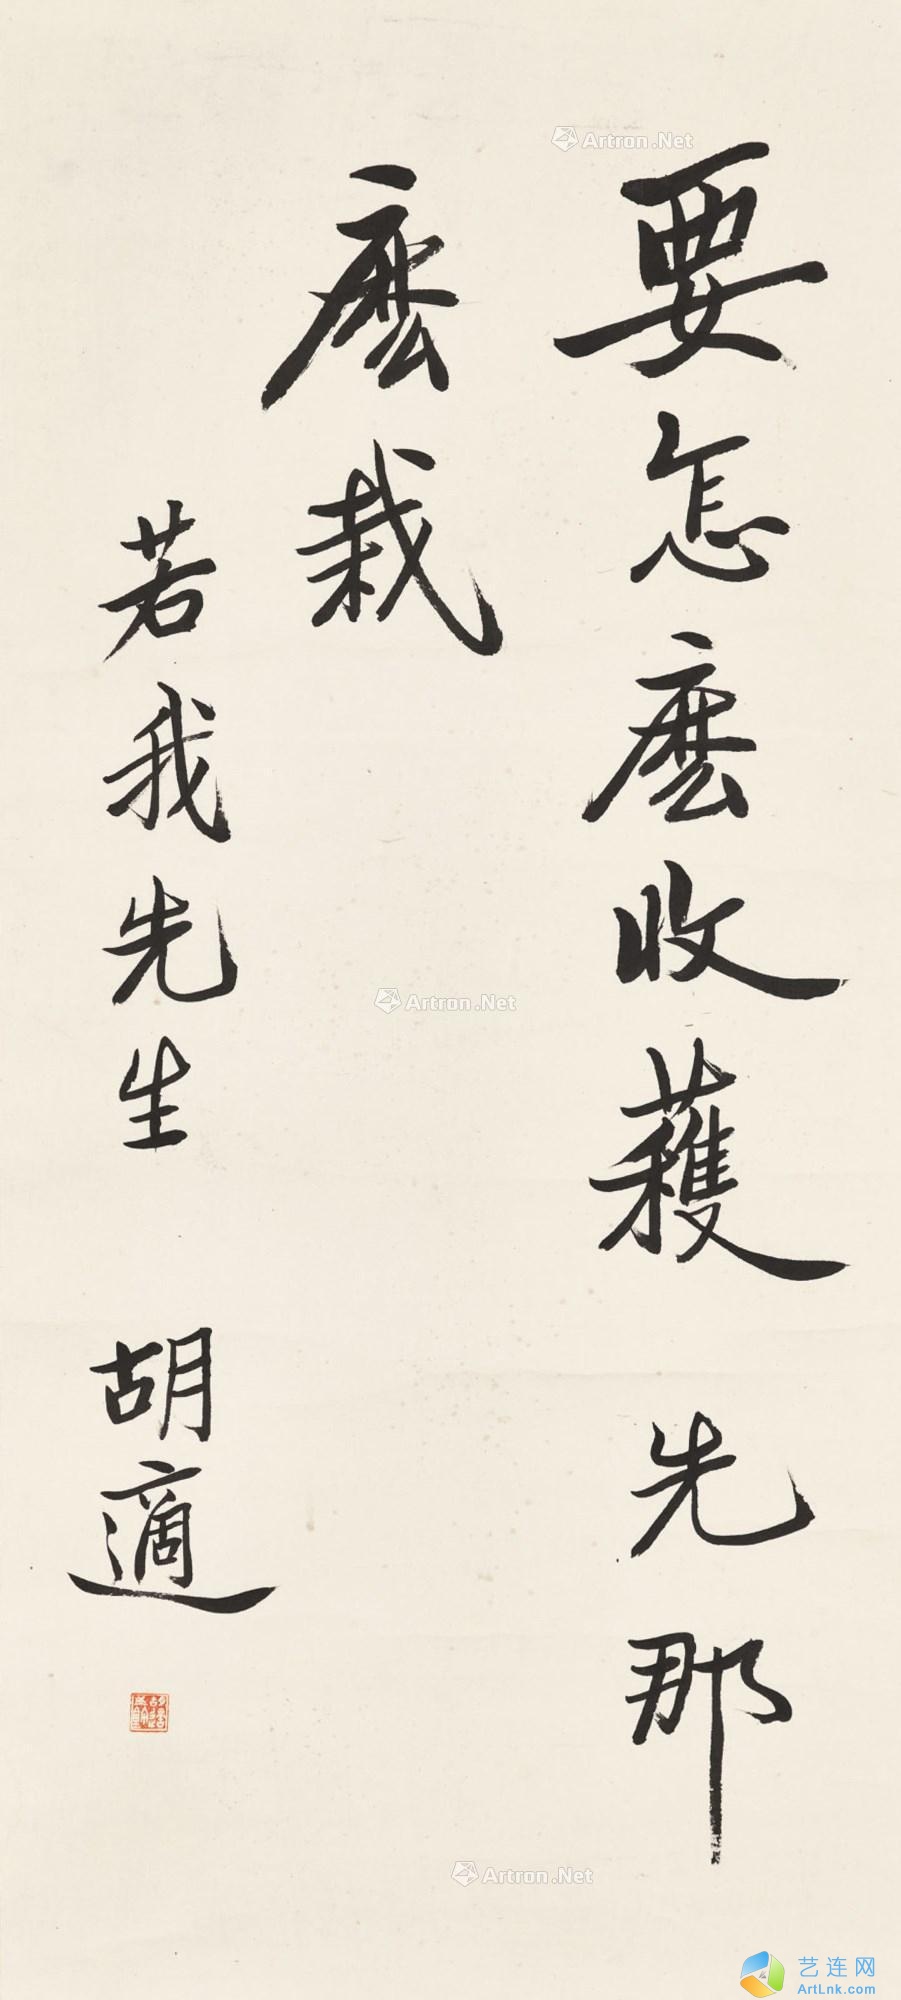 要怎麽收穫先那
麽栽
若我先生 胡適
Artron.Net
Artron.Net
Artron.Net
艺连网
ArtLnk.com